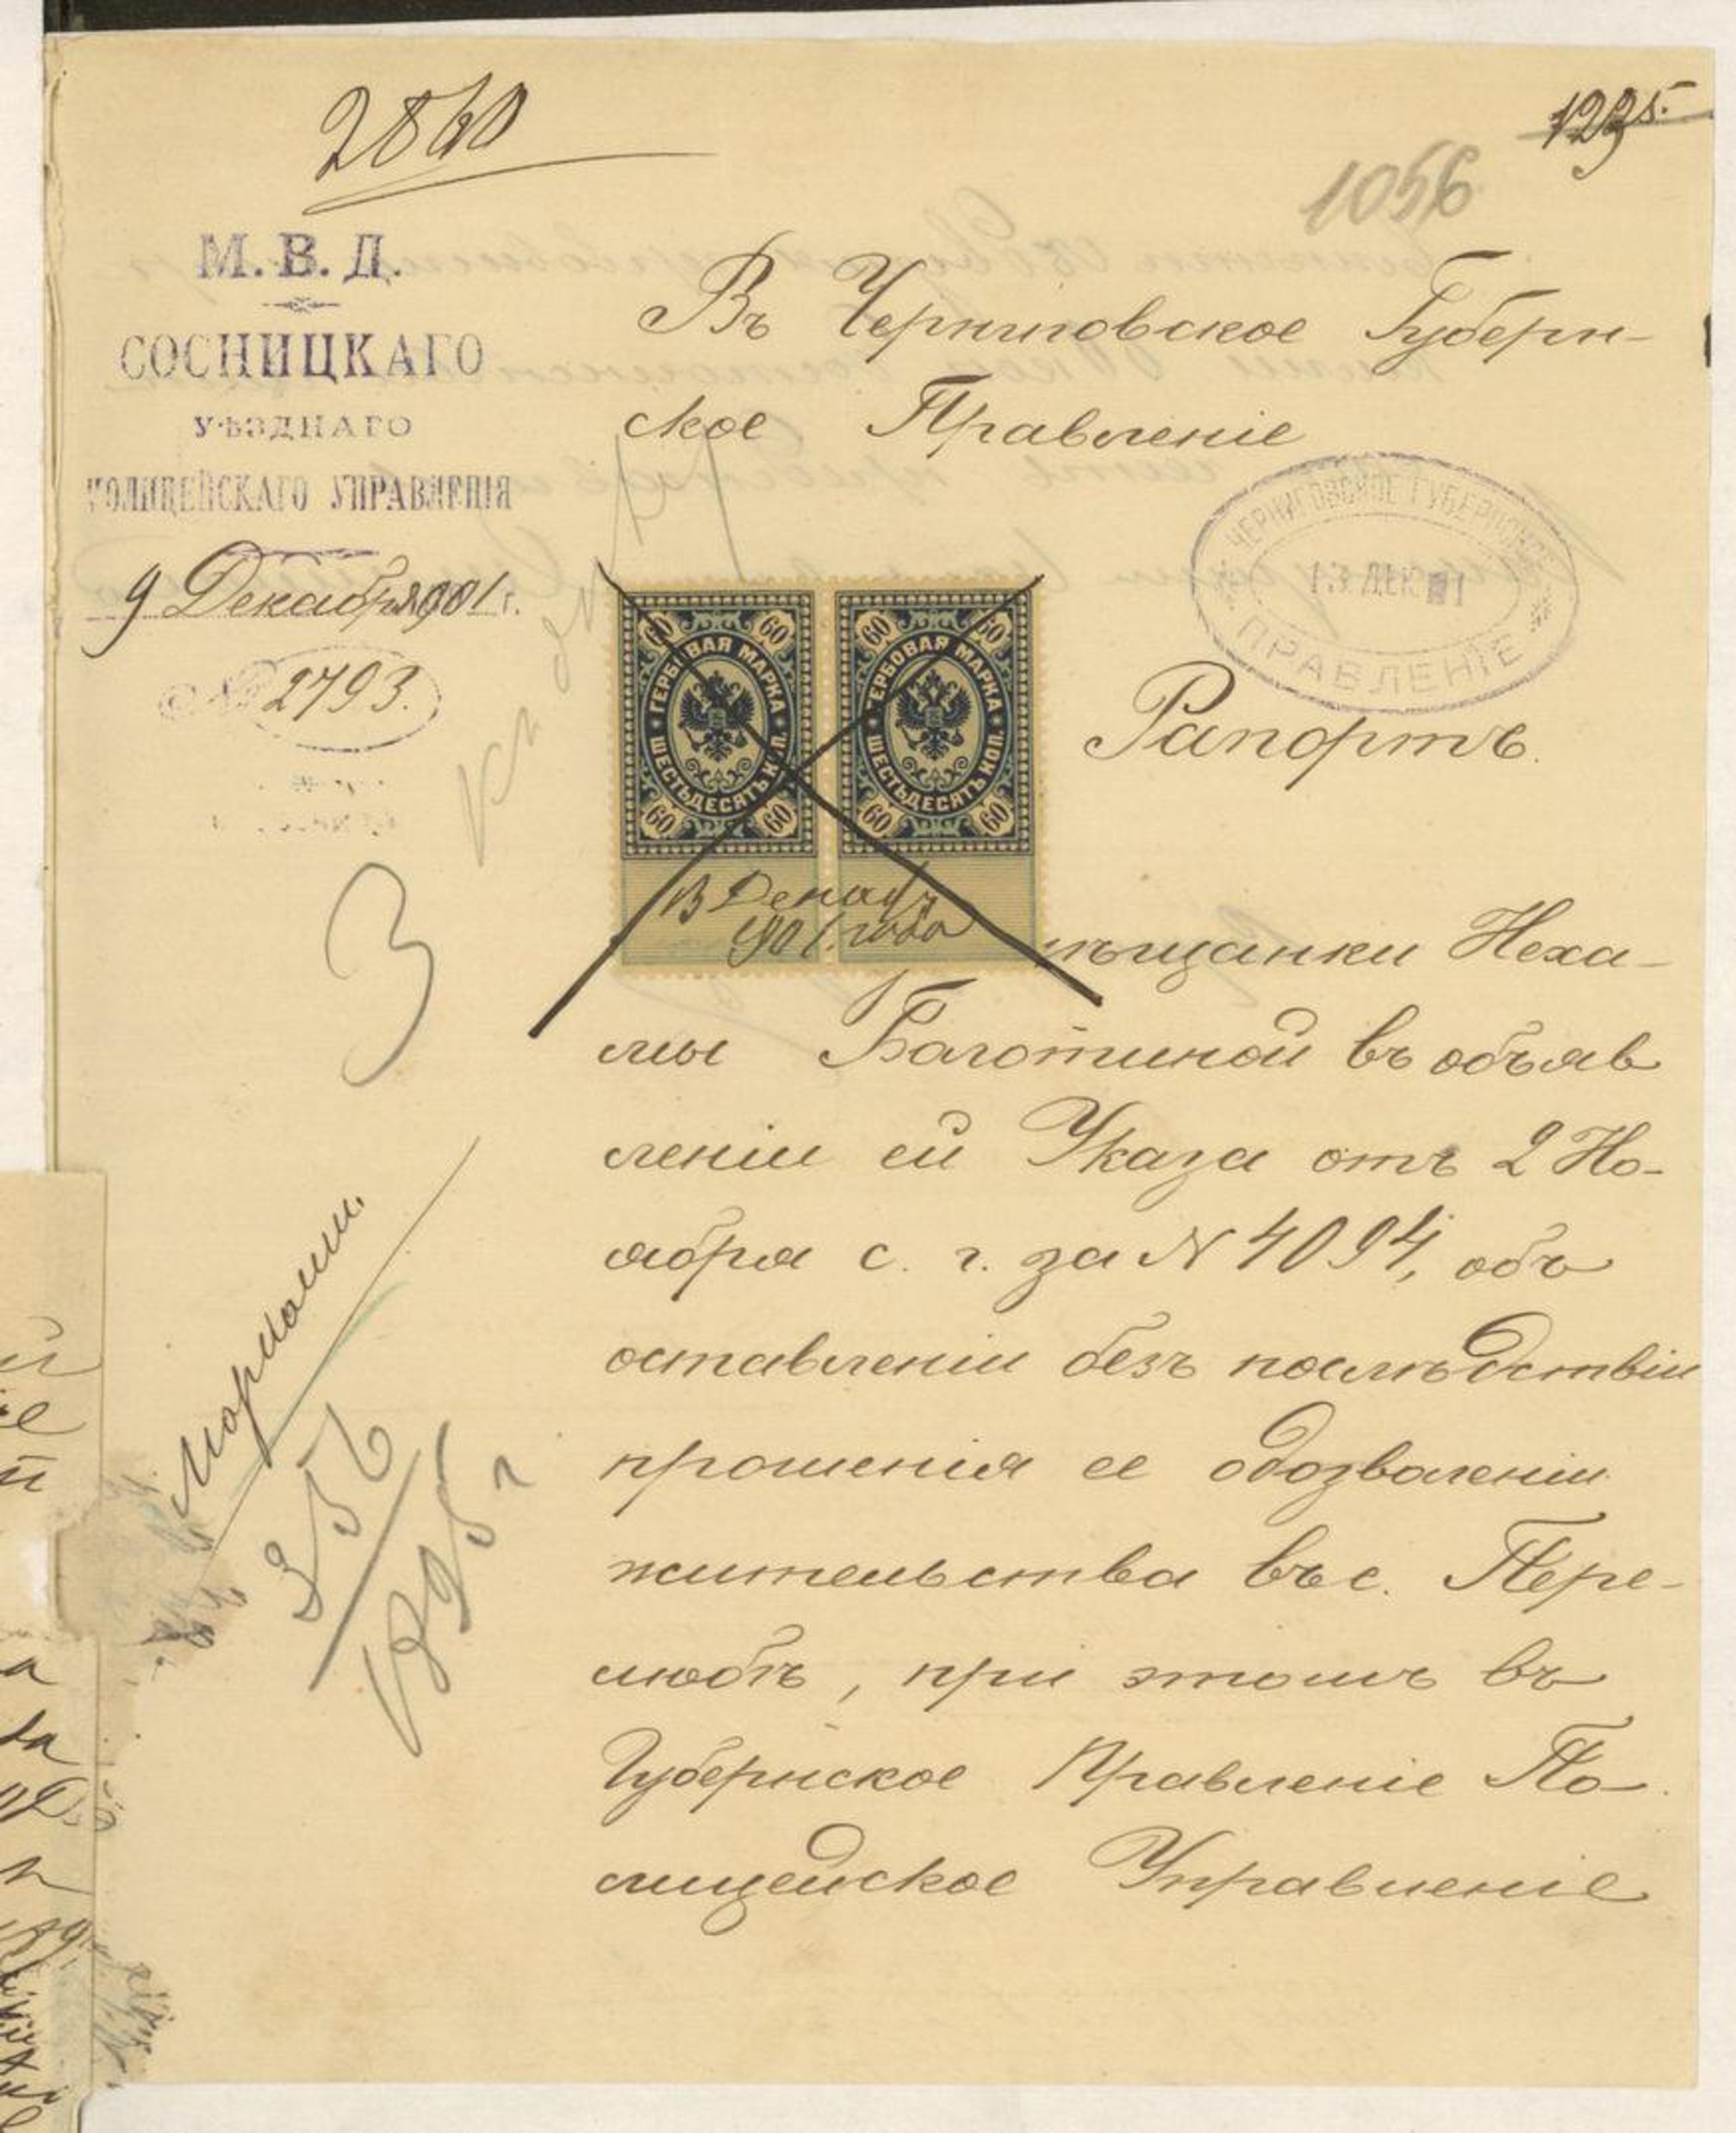 2860
1225.
1056
М. В. Д.
СОСНИЦКАГО
УѢЗДНАГО
ПОЛИЦЕЙСКАГО УПРАВЛЕНІЯ
9 Декабря 1901 г.
№ 2793.
Въ Черниговское Губерн-
ское Правленіе
ЧЕРНИГОВСКОЕ ГУБЕРНСКОЕ
13 ДЕК
ПРАВЛЕНІЕ
Рапортъ.
60 60 60 60
ГЕРБОВАЯ МАРКА
ШЕСТЬДЕСЯТЬ КОП.
60 60 60 60
ГЕРБОВАЯ МАРКА
ШЕСТЬДЕСЯТЬ КОП.
13 Декабр
1901 года
3
мѣщанки Неха-
мы Болотиной въ объяв
леніи ей Указа отъ 2 Но-
ября с. г. за № 4094, объ
оставленіи безъ послѣдствіи
прошенія ее одозволеніи
жительства въ с. Пере-
любѣ, при этомъ въ
Губернское Правленіе По-
лицейское Управленіе
356
1895 г